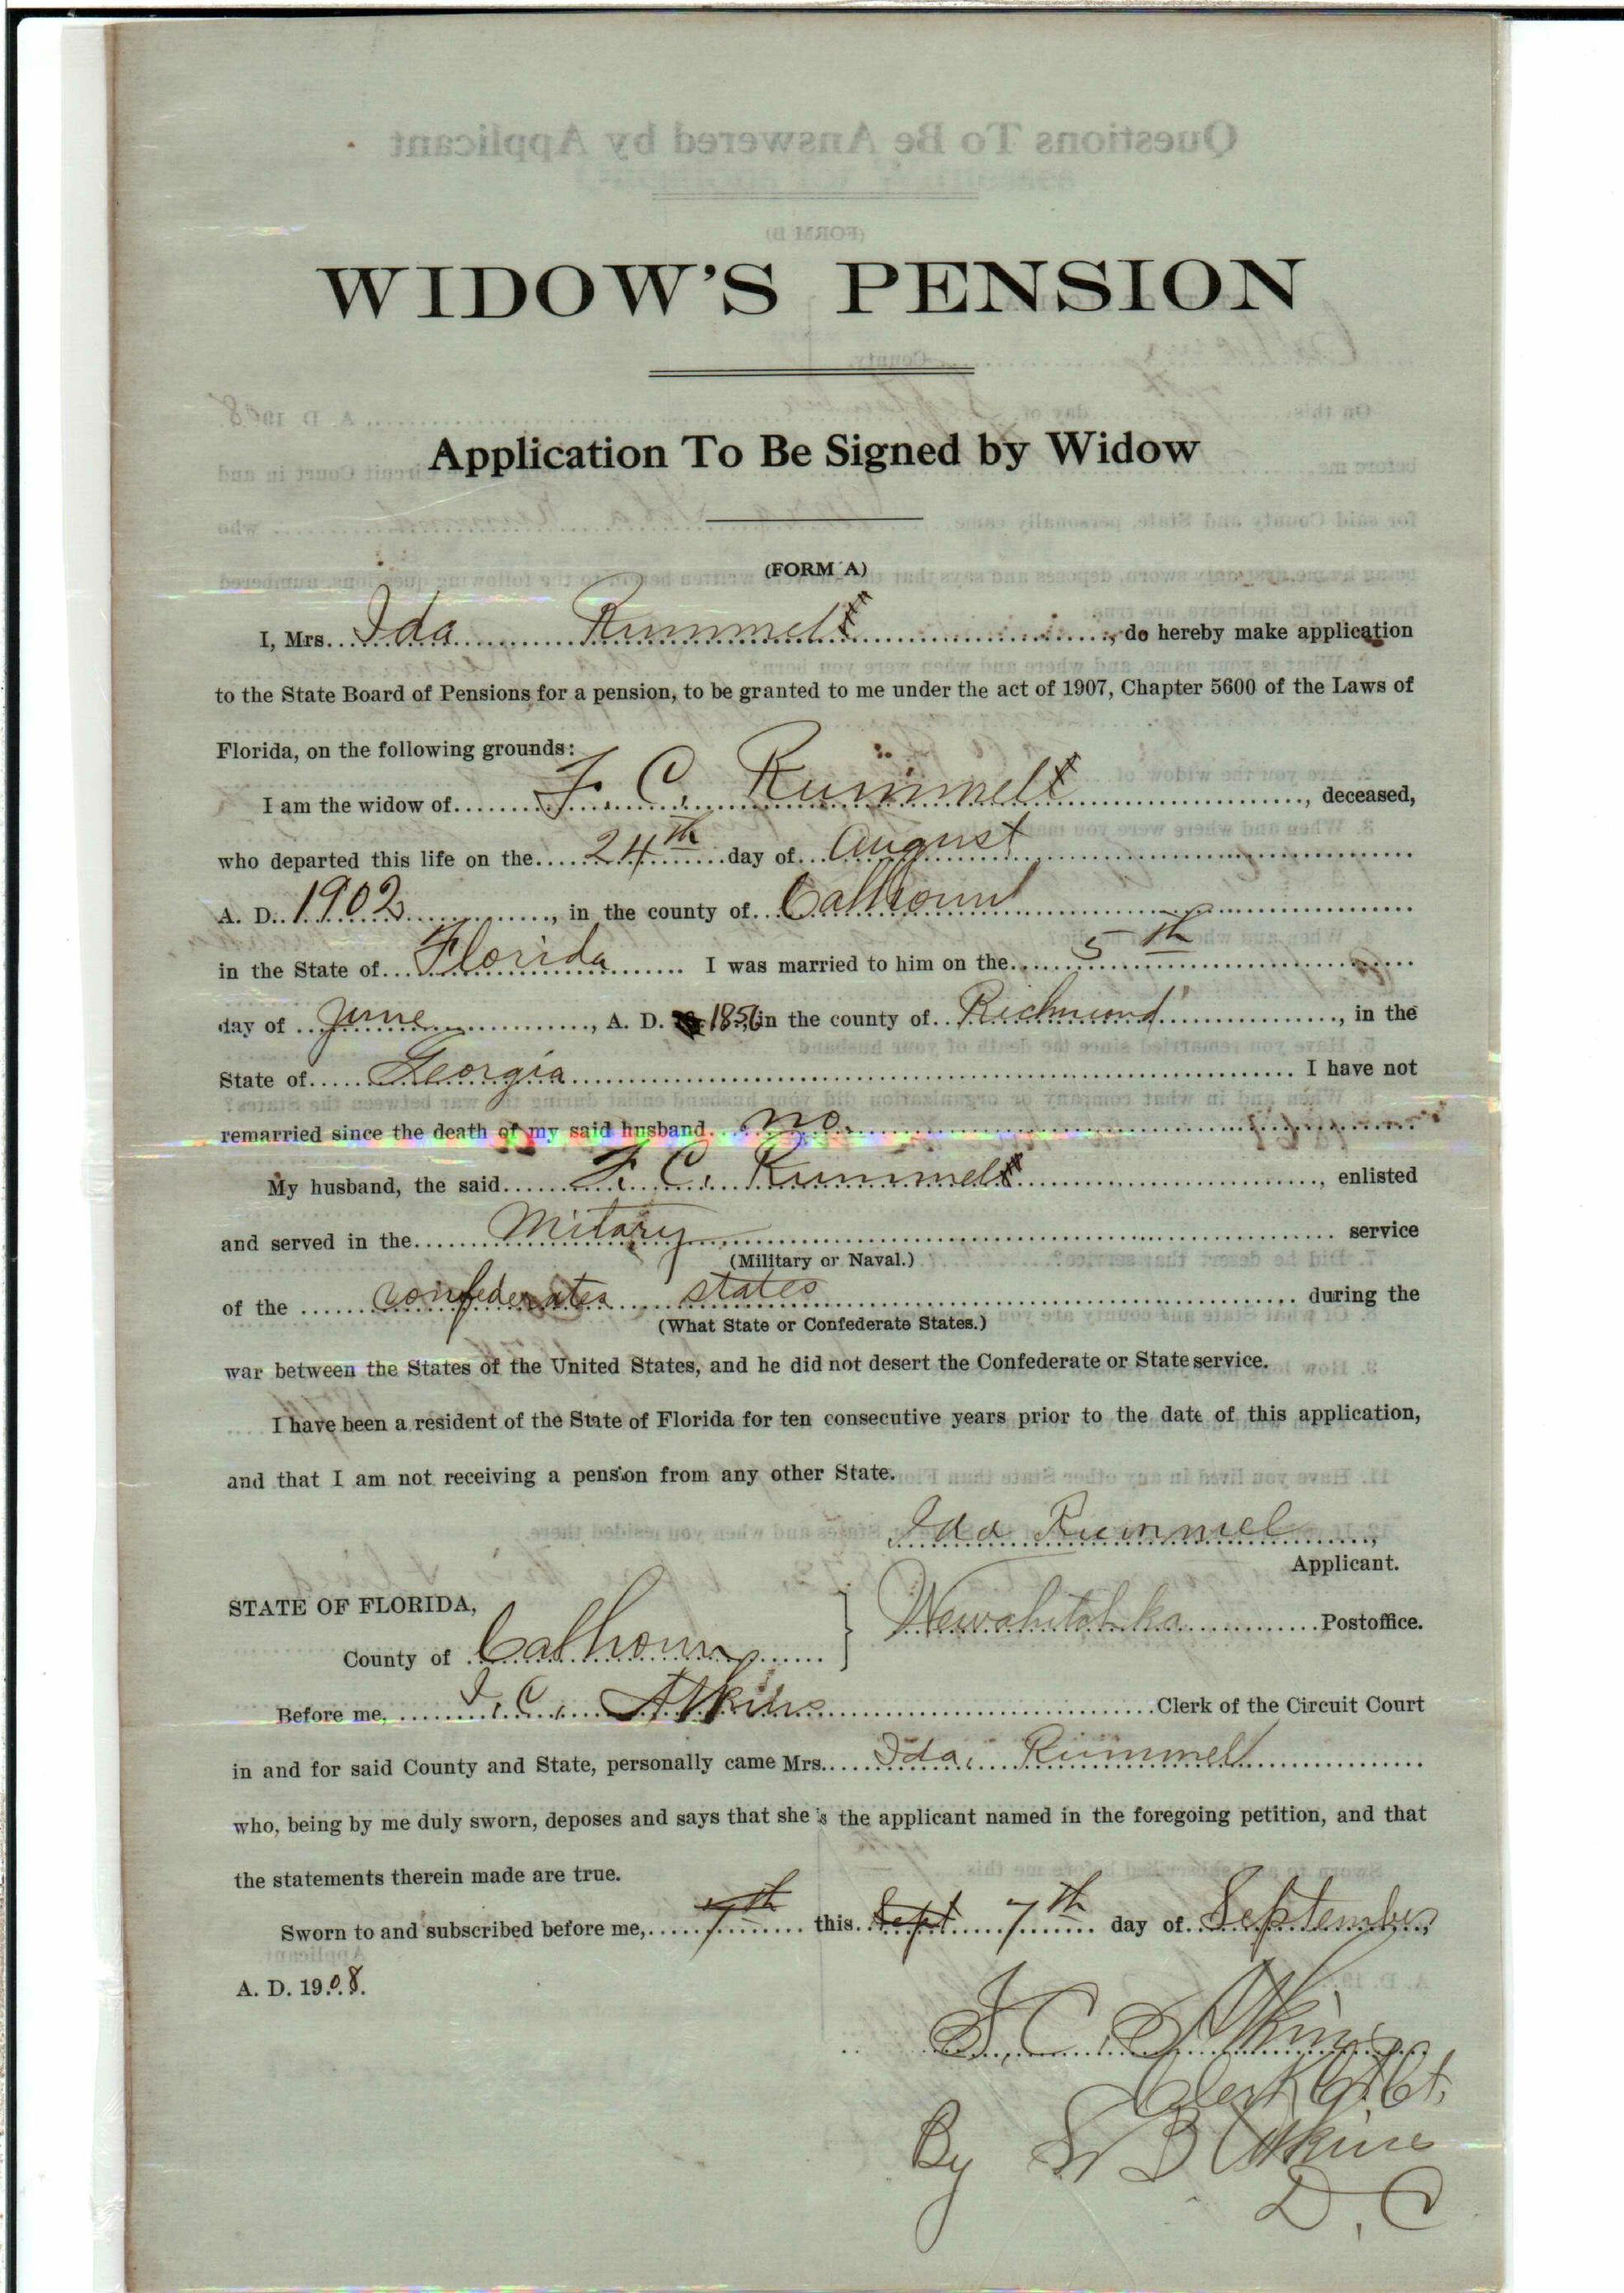 WIDOW'S PENSION
Application To Be Signed by Widow
(FORM A)
I, Mrs. Ida Rummel, do hereby make application
to the State Board of Pensions for a pension, to be granted to me under the act of 1907, Chapter 5600 of the Laws of
Florida, on the following grounds:
I am the widow of F. C. Rummel, deceased,
who departed this life on the 24th day of August
A. D. 1902, in the county of Calhoun
in the State of Florida I was married to him on the 5th
day of June, A. D. 1856 in the county of Richmond, in the
State of Georgia I have not
remarried since the death of my said husband. no.
My husband, the said F. C. Rummel, enlisted
and served in the Mitary service
(Military or Naval.)
of the confederates states during the
(What State or Confederate States.)
war between the States of the United States, and he did not desert the Confederate or State service.
I have been a resident of the State of Florida for ten consecutive years prior to the date of this application,
and that I am not receiving a pension from any other State.
Ida Rummel,
Applicant.
STATE OF FLORIDA,
Wewahitchka Postoffice.
County of Calhoun
Before me, J. C. Atkins Clerk of the Circuit Court
in and for said County and State, personally came Mrs. Ida Rummel
who, being by me duly sworn, deposes and says that she is the applicant named in the foregoing petition, and that
the statements therein made are true.
Sworn to and subscribed before me, 7th this Sept 7th day of September,
A. D. 1908.
J. C. Atkins
Clerk Ct. Ct.
By Atkins
D. C